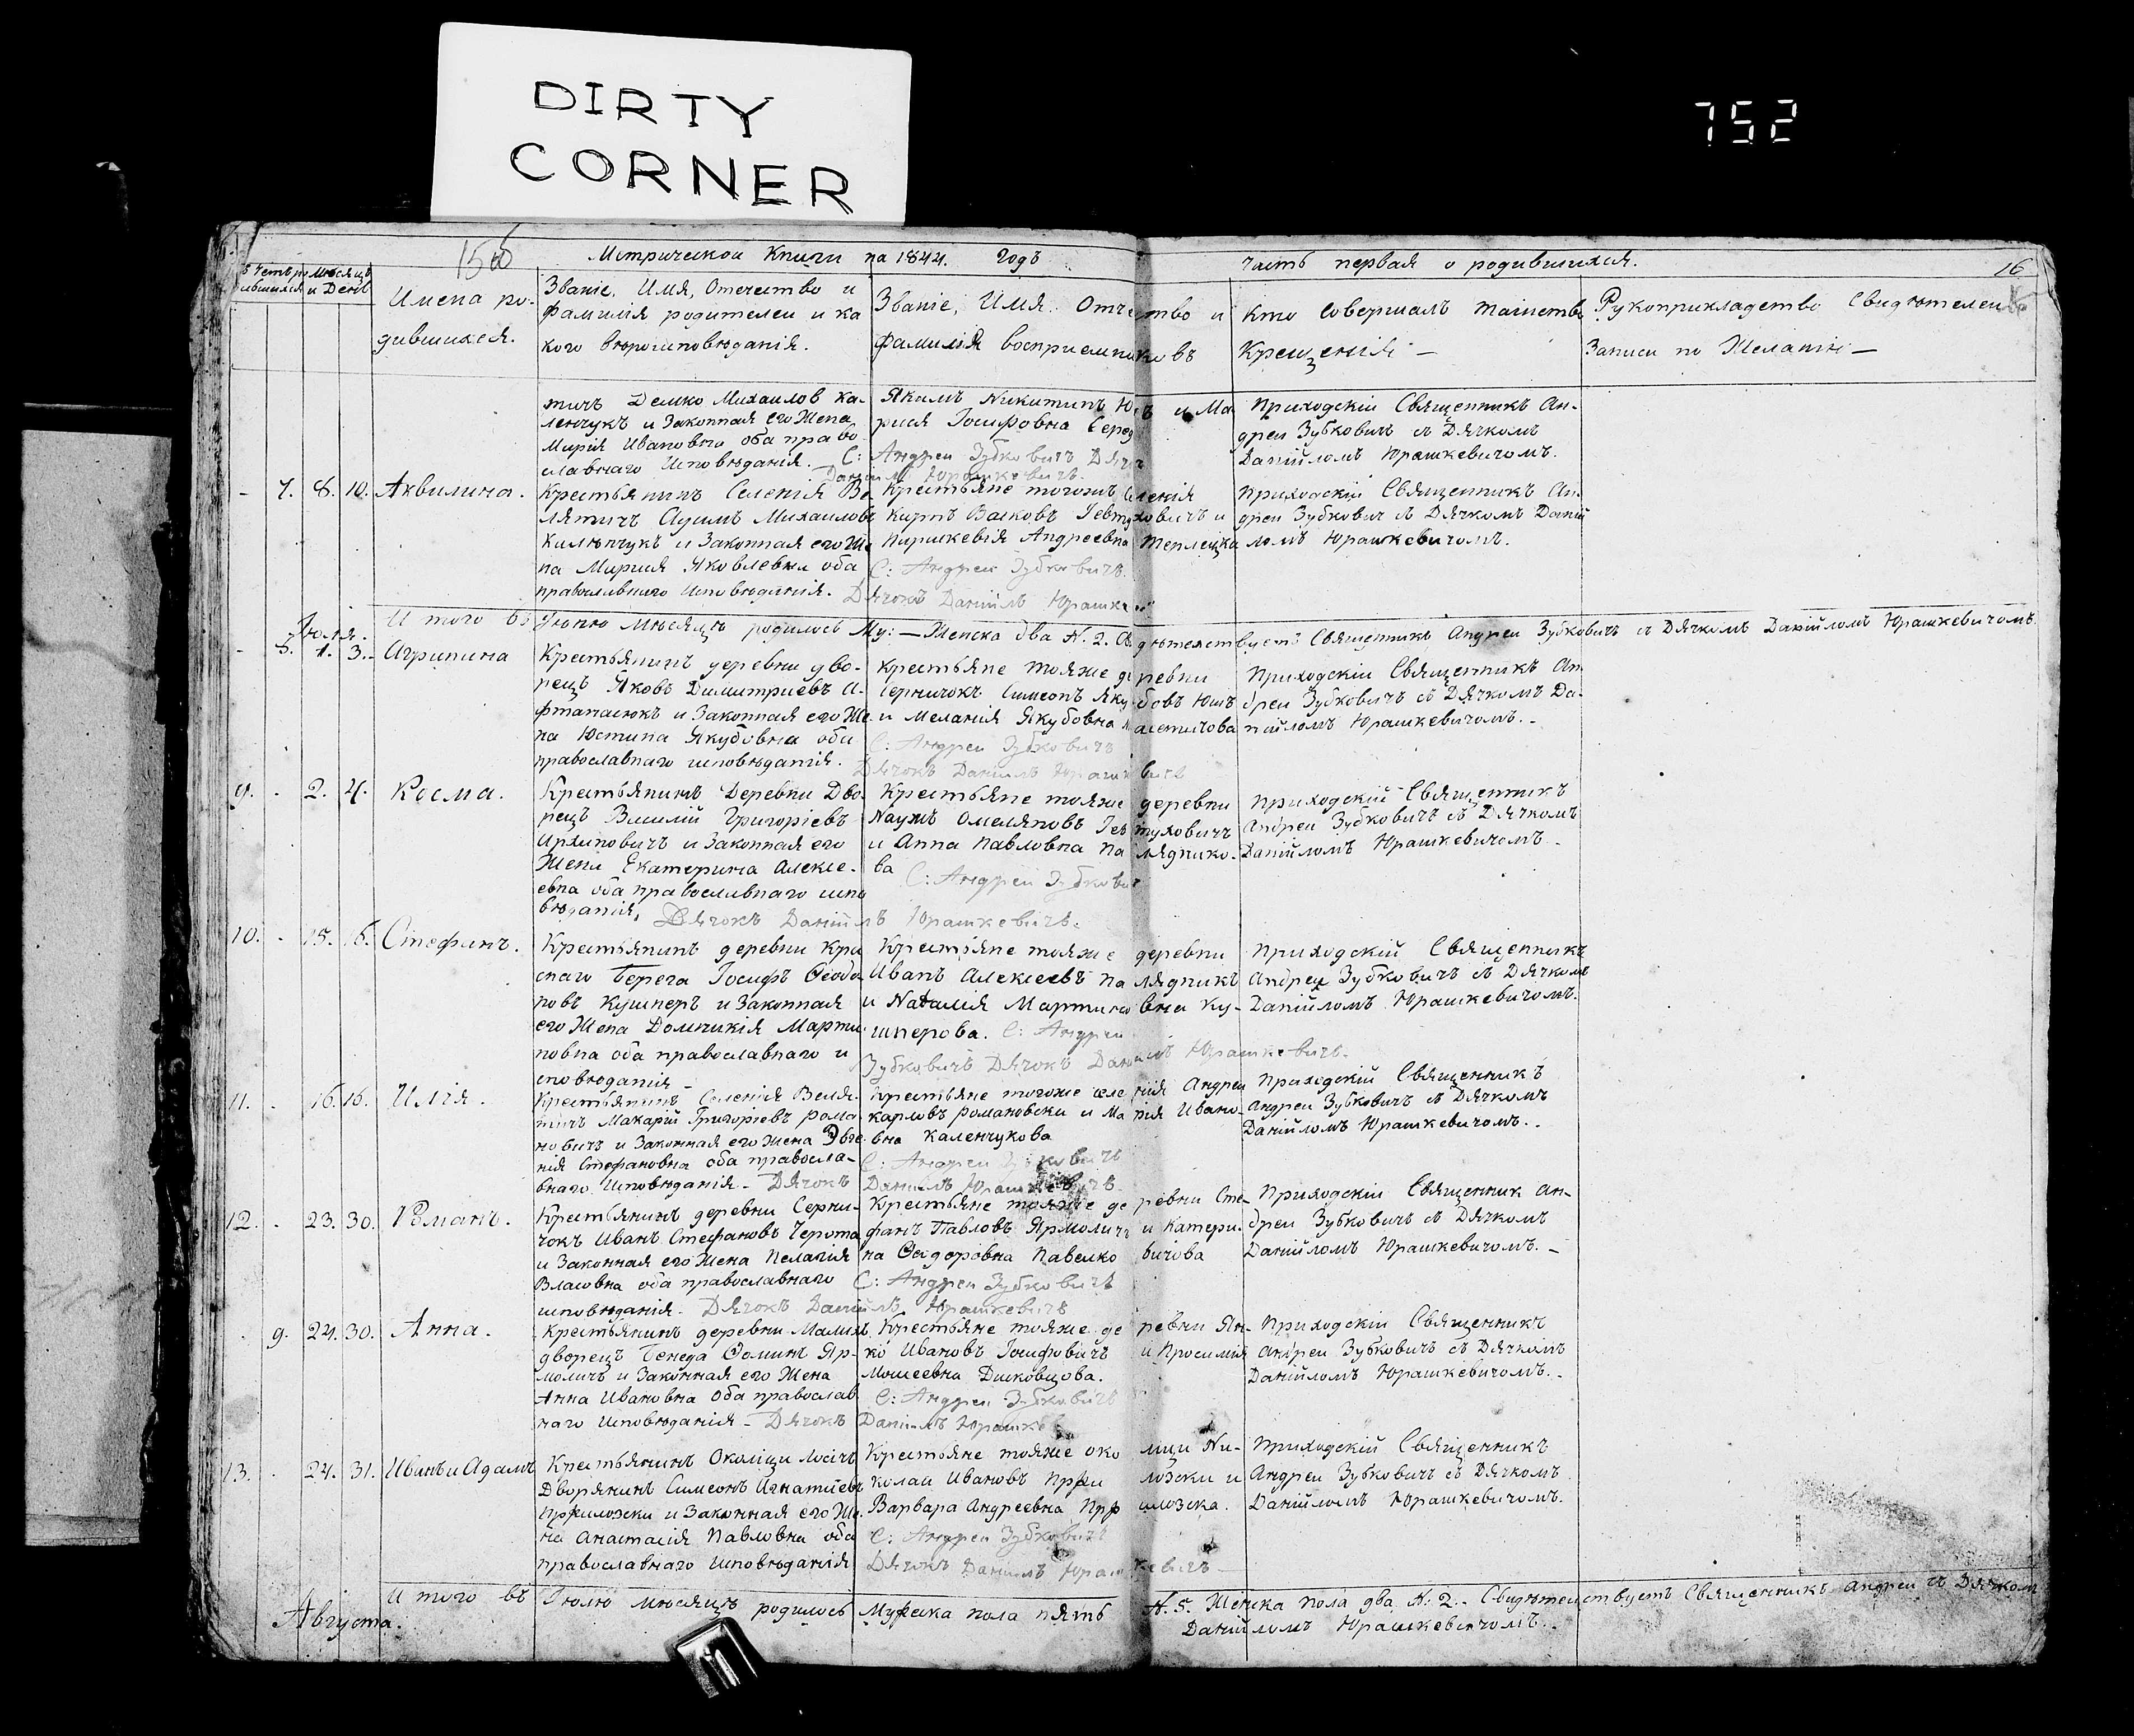 DIRTY
CORNER
752
156
Метрической Книги на 1844. Годъ
часть первая о родившихся.
16
Мѣсяцъ
и День
Имена ро-
дившихся.
Званіе, Имя, Отечество и
фамилія родителей и ка
кого вѣроисповѣданія.
Званіе, Имя. Отчество и
фамилія восприемниковъ
Кто совершалъ таинств
Крещенія —
Рукоприкладство Свидѣтелей
Записи по Желанію —
тичъ Демко Михаилов Ка-
ленчукъ и Законная его Жена
Марія Ивановна оба право
славнаго исповѣданія.
Якимъ Никитинъ и Ма
рися Іосифовна
С: Андрей Зубковичъ
Даніилъ Юрашкевичъ.
Приходскій Священникъ Ан-
дрей Зубковичъ съ Дячкомъ
Даніиломъ Юрашкевичомъ.
- 7. 8. 10. Аквилина.
Крестьянинъ Селенія Ве
лятичъ Михаиловъ
Каленчукъ и Законная его Же
на Мария Яковлевна оба
православного исповѣданія.
Крестьяне тогожъ Селенія
Волковъ Іевтуховичъ и
Андреевна
С: Андрей Зубковичъ.
Дячокъ Даніилъ Юрашке
Приходскій Священникъ Ан-
дрей Зубкович съ Дячкомъ Даній
ломъ Юрашкевичомъ.
И того въ Іюню мѣсяцѣ родилось Му: — Женска два N. 2. Свидѣтельствуетъ Священникъ Андрей Зубковичъ съ Дячкомъ Даніиломъ Юрашкевичомъ.
Іюля.
1. 3. Агрипина
Крестьянинъ деревни дво-
рецъ Яковъ Димитриевъ А-
фтанасюкъ и Законная его Же-
на Юстина Якубовна оба
православнаго исповѣданія.
крестьяне тояже деревни
Симеонъ Якубовъ
и Меланія Якубовна
С: Андрей Зубковичъ
Дячокъ Даніилъ Юрашкевичъ
Приходскій Священникъ Ан
дрей Зубковичъ съ Дячкомъ Да-
ніиломъ Юрашкевичомъ. -
9. - 2. 4. Косма.
Крестьянинъ Деревни Дво-
рецъ Василій Григоріевъ
Архиповичъ и Законная его
Жена Екатерина Алексе-
евна оба православнаго испо
вѣданія,
Крестьяне тояже деревни
Наумъ Омеляновъ Іевтуховичъ
и Анна Павловна Паляднико-
ва
С: Андрей Зубкович
Дячокъ Даніилъ Юрашкевичъ.
приходскій Священникъ
Андрей Зубковичъ съ Дячкомъ
Даніиломъ Юрашкевичомъ -
10. - 15. 16. Стефанъ.
Крестьянинъ деревни Кра
снаго Берега Іосифъ Феодо
ровъ Кушнеръ и Законная
его Жена Домникія Марти-
новна оба православнаго и
сповѣданія -
Крестьяне тояже деревни
Иванъ Алексеевъ Палядникъ
и Наталія Мартиновна Ку-
шнерова. С: Андрей
Зубковичъ Дячокъ Даніилъ Юрашкевичъ.
Приходскій Священникъ
Андрей Зубковичъ съ Дячкомъ
Даніиломъ Юрашкевичомъ.
11. - 16. 16. Илія.
Крестьянинъ Селенія Веля-
тичъ Макарій Григоріевъ Рома
новичъ и Законная его Жена Эвге
нія Стефановна оба правосла-
внаго исповѣданія -
Крестьяне тогоже селенія Андрей
Карловъ Романовски и Марія Ивано-
вна Каленчукова
С: Андрей Зубковичъ
Дячокъ Даніилъ Юрашкевичъ.
Приходскій Священникъ
Андрей Зубковичъ съ Дячкомъ
Даніиломъ Юрашкевичомъ. -
12. - 23. 30. Романъ.
Крестьянинъ деревни Серни-
чокъ Иванъ Стефановъ Черота
и Законная его Жена Пелагія
Власовна оба православнаго
исповѣданія -
Крестьяне тояже деревни Сте-
фанъ Павловъ Ярмоличъ и Катери-
на Феодоровна Павелковичова
С: Андрей Зубковичъ
Дячокъ Даніилъ Юрашкевичъ
Приходскій Священник Ан-
дрей Зубковичъ съ Дячкомъ
Даніиломъ Юрашкевичомъ. -
- 9. 24. 30. Анна.
Крестьянинъ деревни Малихъ
дворецъ Бенеда Фоминъ Яр-
моличъ и Законная его Жена
Анна Ивановна оба православ
наго исповѣданія -
Крестьяне тояже деревни Ян-
ко Ивановъ Іосифовичъ и Просимія
Мосеевна Дисковцова.
С: Андрей Зубковичъ
Дячокъ Даніилъ Юрашке
Приходскій Священникъ
Андрей Зубковичъ съ Дячкомъ
Даніиломъ Юрашкевичомъ. -
13. - 24. 31. Иванъ и Адамъ
Крестьянинъ Околици
Дворянинъ Симеонъ Игнатиевъ
и Законная его Же-
на Анастасія Павловна оба
православнаго исповѣданія
Крестьяне тояже околици Ни-
колай Ивановъ и
Варвара Андреевна
С: Андрей Зубковичъ
Дячокъ Даніилъ Юрашкевичъ
Приходскій Священникъ
Андрей Зубковичъ съ Дячкомъ
Даніиломъ Юрашкевичомъ.
И того въ Іюлю мѣсяцѣ родилось Мужска пола пять N. 5. Женска пола два N. 2. - Свидѣтельствуетъ Священникъ Андрей съ Дячком
Даніиломъ Юрашкевичомъ. -
Августа.